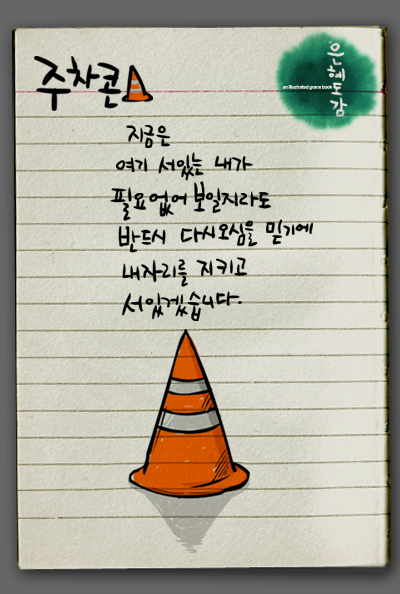 주차콘
은혜도감
an illustrated grace book
지금은
여기 서있는 내가
필요없어 보일지라도
반드시 다시오심을 믿기에
내자리를 지키고
서있겠습니다.